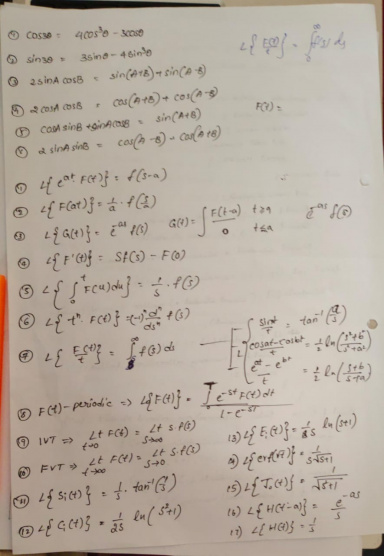 ① cos3θ = 4cos³θ - 3cosθ
② sin3θ = 3sinθ - 4sin³θ
③ 2sinA cosB = sin(A+B) + sin(A-B)
④ 2cosA cosB = cos(A+B) + cos(A-B)
⑤ cosA sinB + sinA cosB = sin(A+B)
⑥ 2 sinA sinB = cos(A-B) - cos(A+B)
L{F(t)/t} = ∫₀^∞ f(s) ds
F(t) =
① L{e^at F(t)} = f(s-a)
② L{F(at)} = 1/a · f(s/a)
③ L{G(t)} = e^-as f(s) G(t) = { F(t-a) t≥a
0 t≤a
e^-as f(s)
④ L{F'(t)} = Sf(s) - F(0)
⑤ L{∫₀^t F(u)du} = 1/s · f(s)
⑥ L{t^n · F(t)} = (-1)^n d^n/ds^n f(s)
⑦ L{F(t)/t} = ∫^∞ f(s) ds
L { sin at/t = tan⁻¹(a/s)
cosat - cosbt/t = 1/2 ln(s²+b²/s²+a²)
e^at - e^bt/t = 1/2 ln(s+b/s+a)
⑧ F(t) - periodic ⇒ L{F(t)} = ∫₀^T e^-st F(t) dt / 1 - e^-sT
⑨ IVT ⇒ Lt t→0 F(t) = Lt s→∞ s f(s)
⑩ FVT ⇒ Lt t→∞ F(t) = Lt s→0 s f(s)
⑪ L{Si(t)} = 1/s · tan⁻¹(1/s)
⑫ L{Ci(t)} = 1/2s ln(s²+1)
13) L{Ei(t)} = 1/s ln(s+1)
14) L{erf(√t)} = 1/s√s+1
15) L{J₀(t)} = 1/√s²+1
16) L{H(t-a)} = e^-as/s
17) L{H(t)} = 1/s